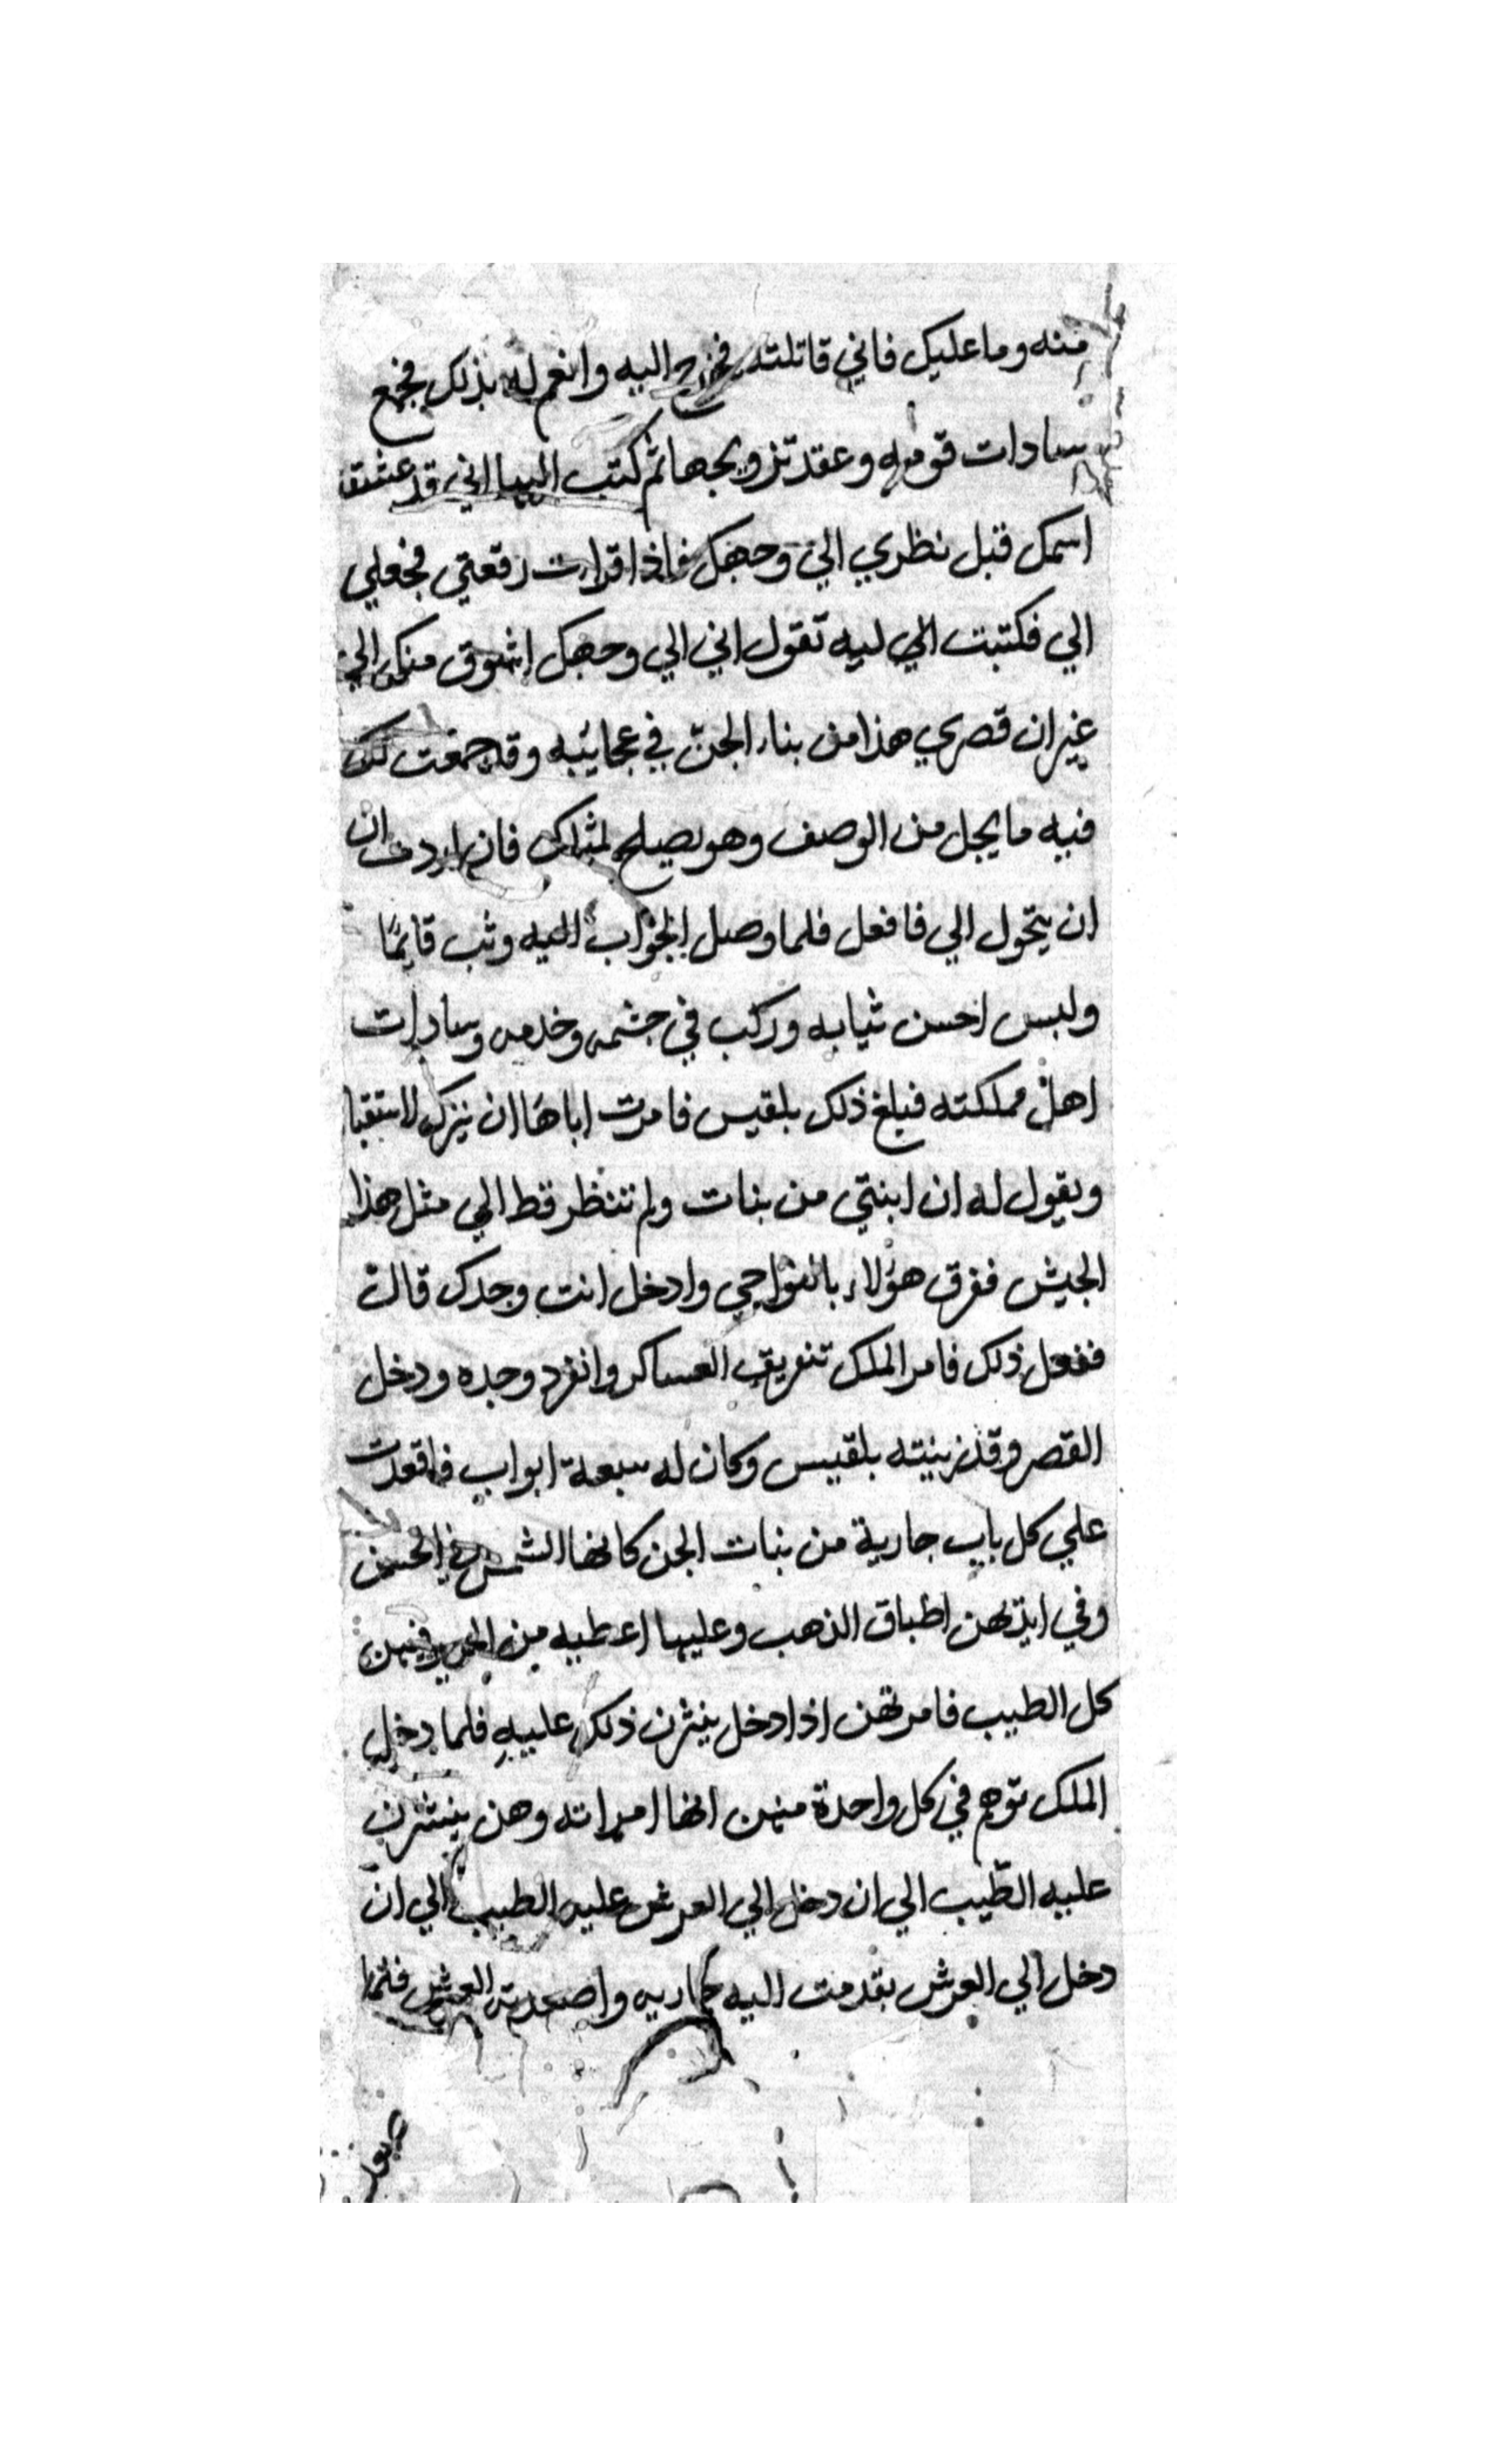 منه وما عليك فاني قاتلته فخرج اليه وانعم له بذلك فجمع
سادات قومه وعقد تزويجها ثم كتب اليها اني قد عشقت
اسمك قبل نظري الي وجهك فاذا قرات رقعتي فجعلي
الي فكتبت الي ليه تقول اني الي وجهك اشوق منك الي
غير ان قصري هذا من بناء الجن في عجايبه وقد جمعت لك
فيه ما يجل من الوصف وهو يصلح لمثلك فان اردت ان
ان يتحول الي فافعل فلما وصل الجواب اليه وثب قايما
ولبس احسن ثيابه وركب في حشمه وخدمه وسادات
اهل مملكته فبلغ ذلك بلقيس فامرت اباها ان ينزل لاستقبا
ويقول له ان ابنتي من بنات ولم تنظر قط الي مثل هذا
الجيش ففرق هؤلاء بالنواحي وادخل انت وحدك قالت
ففعل ذلك فامر الملك تفريق العساكر وانفرد وحده ودخل
القصر وقد زينته بلقيس وكان له سبعة ابواب فاقعدت
علي كل باب جارية من بنات الجن كانها الشمس في الحسن
وفي ايديهن اطباق الذهب وعليها اعطيه من الحرير فيهن
كل الطيب فامرتهن اذا دخل ينثرن ذلك عليه فلما دخل
الملك توهم في كل واحدة منهن انها امراته وهن ينثرن
عليه الطّيب الي ان دخل الي العرش عليه الطيب الي ان
دخل الي العرش بقدمت اليه واصعدته العرش فلما